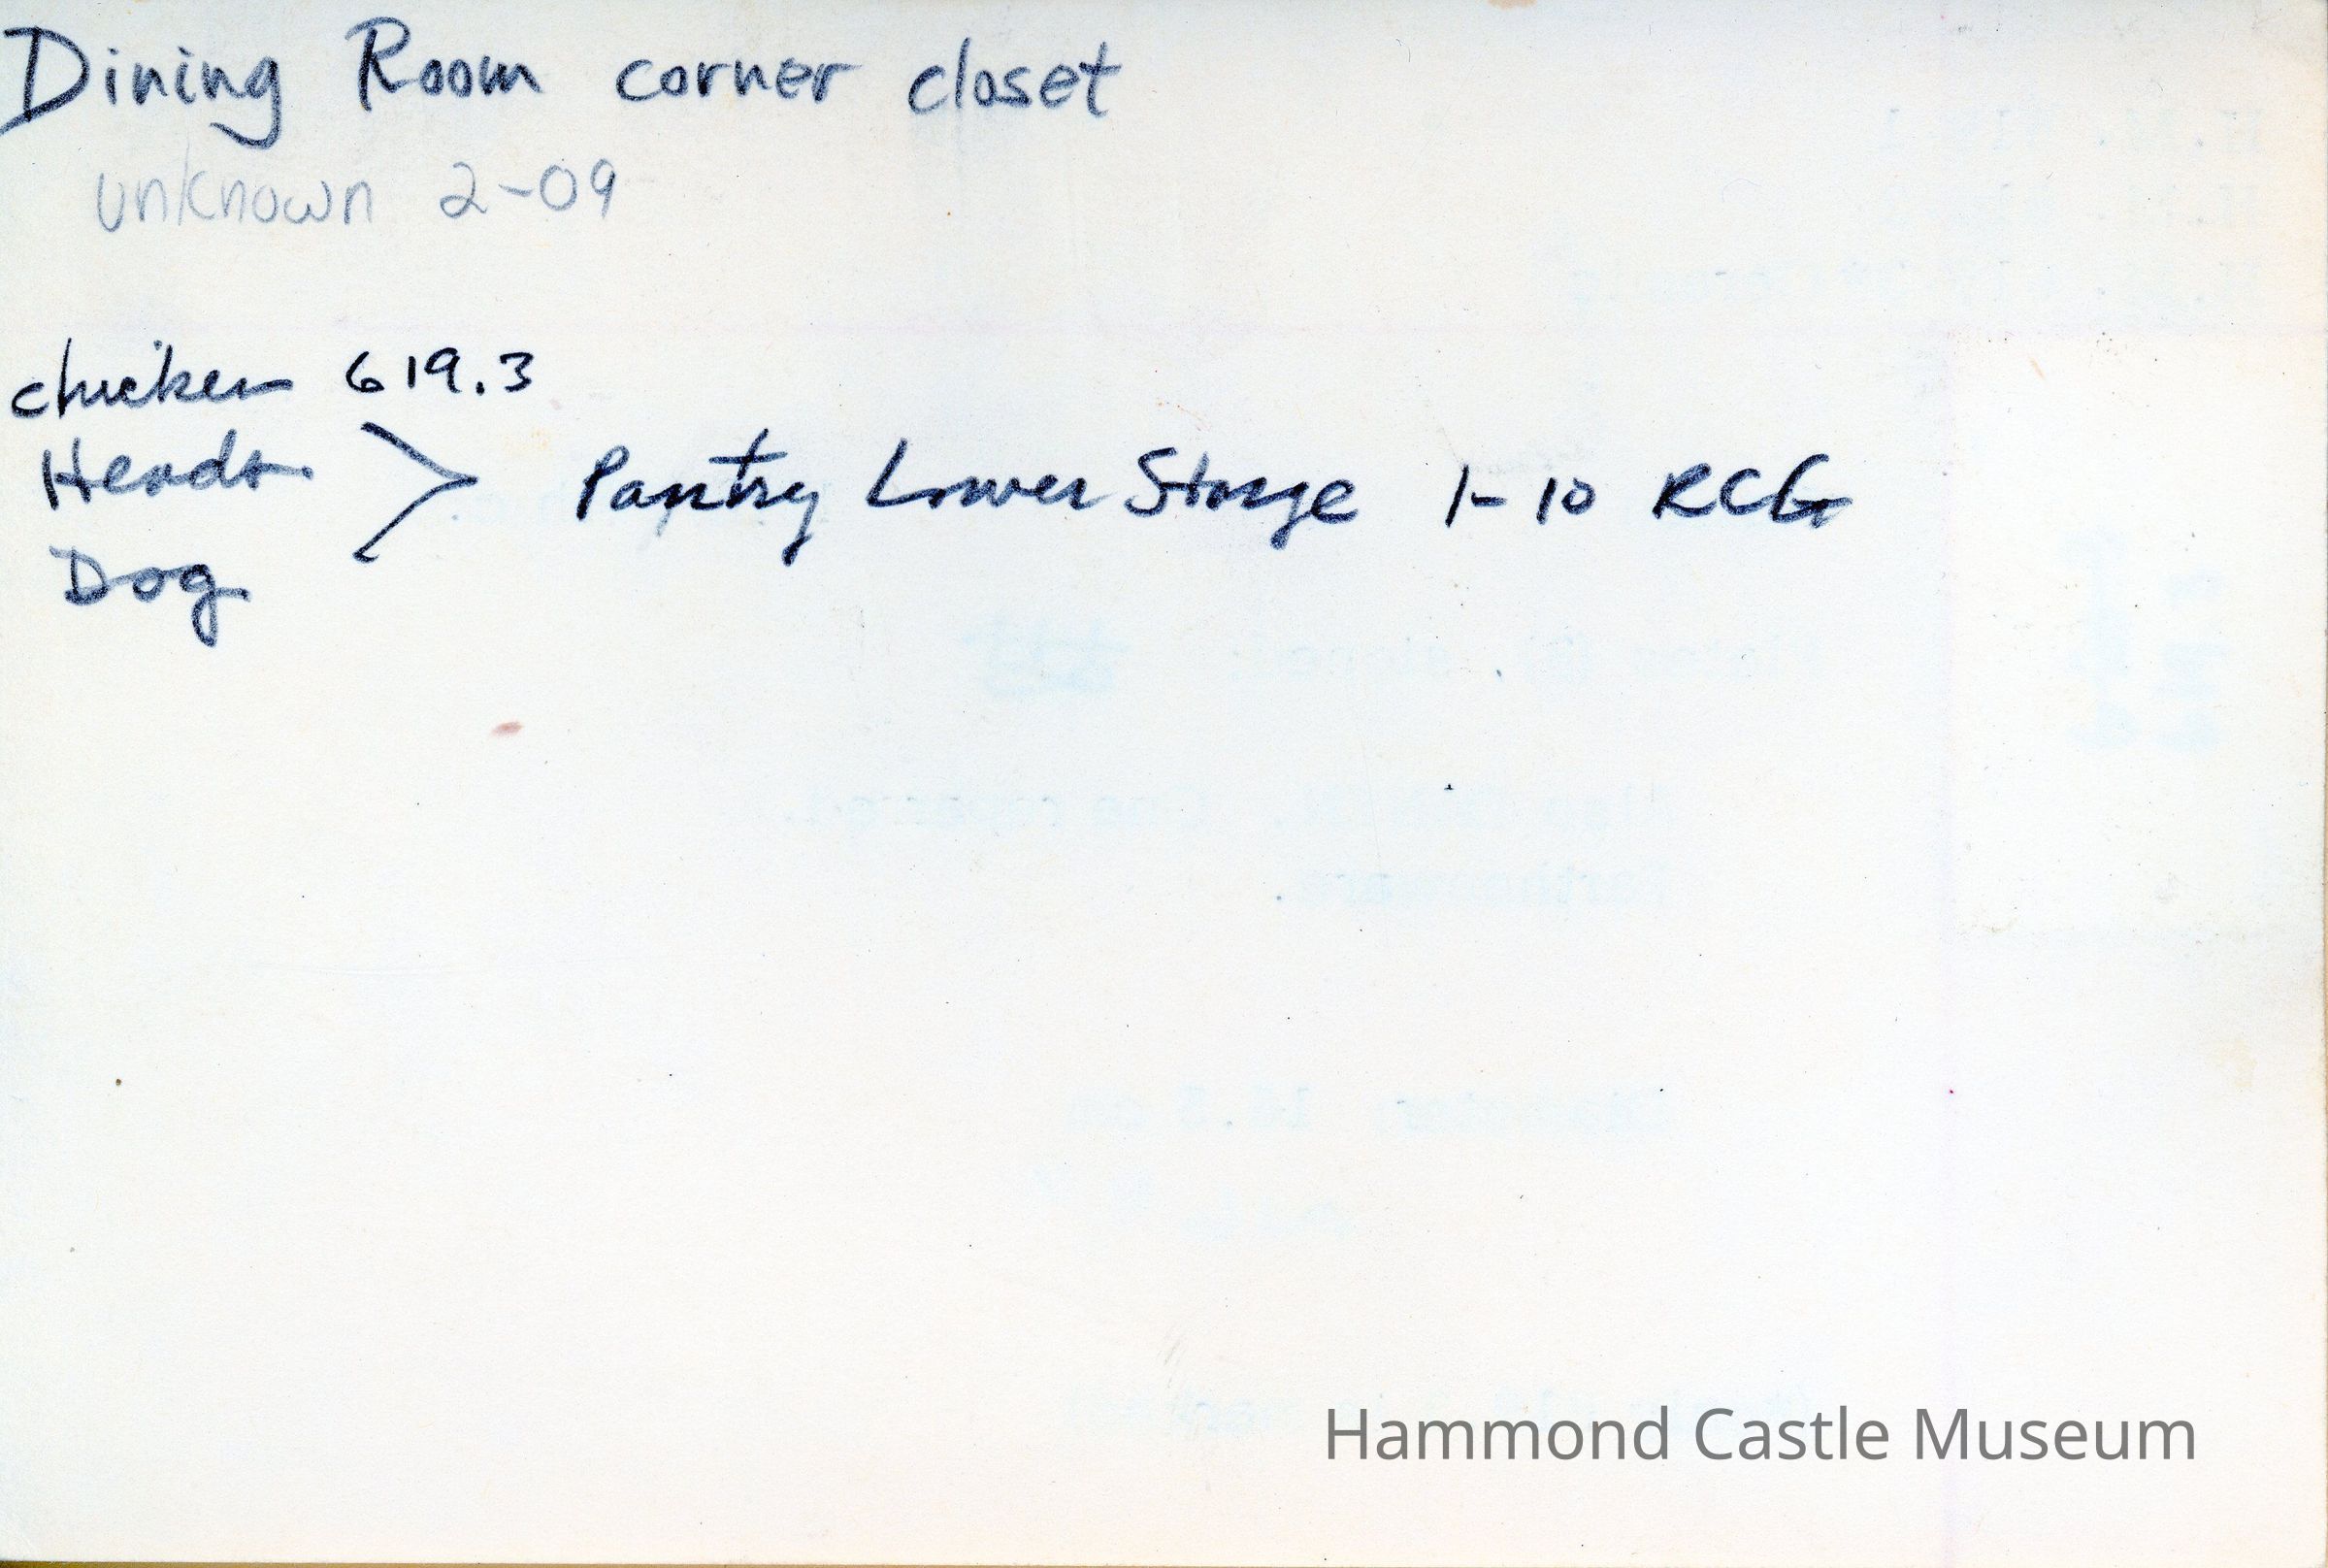 Dining Room corner closet
unknown 2-09
chicken 619.3
Heads
Dog
> Pantry Lower Storage 1-10 RCG
Hammond Castle Museum